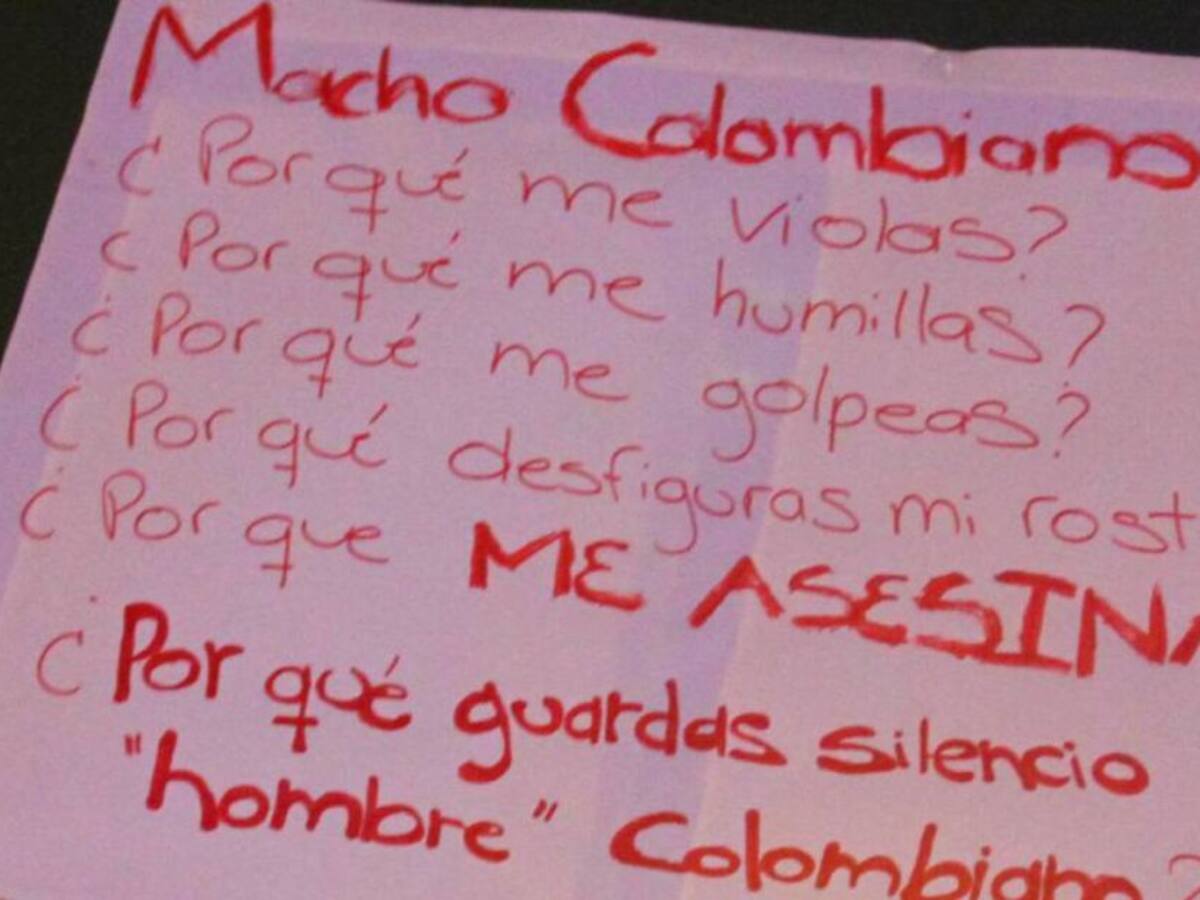 Macho Colombiano
¿Por qué me violas?
¿Por qué me humillas?
¿Por qué me golpeas?
¿Por qué desfiguras mi rost
¿Por que ME ASESINA
¿Por qué guardas silencio
"hombre" Colombiano?